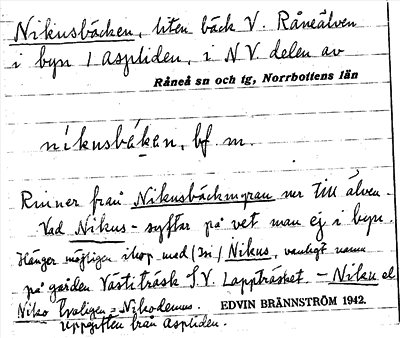 Nikusbäcken, liten bäck V. Råneälven
i byn / Aspliden, i NV. delen av
Råneå sn och tg, Norrbottens län
níkusbäken, bf. m.
Rinner från Nikusbäckmyran ner till älven.
Vad Nikus- syftar på vet man ej i byn.
Hänger möjligen ihop med / Nikus, vanligt namn
på gården Västiträsk S.V. Lappträsket - Niku el.
Niko troligen = Nikodemus. EDVIN BRÄNNSTRÖM 1942.
Uppgiften från Aspliden.